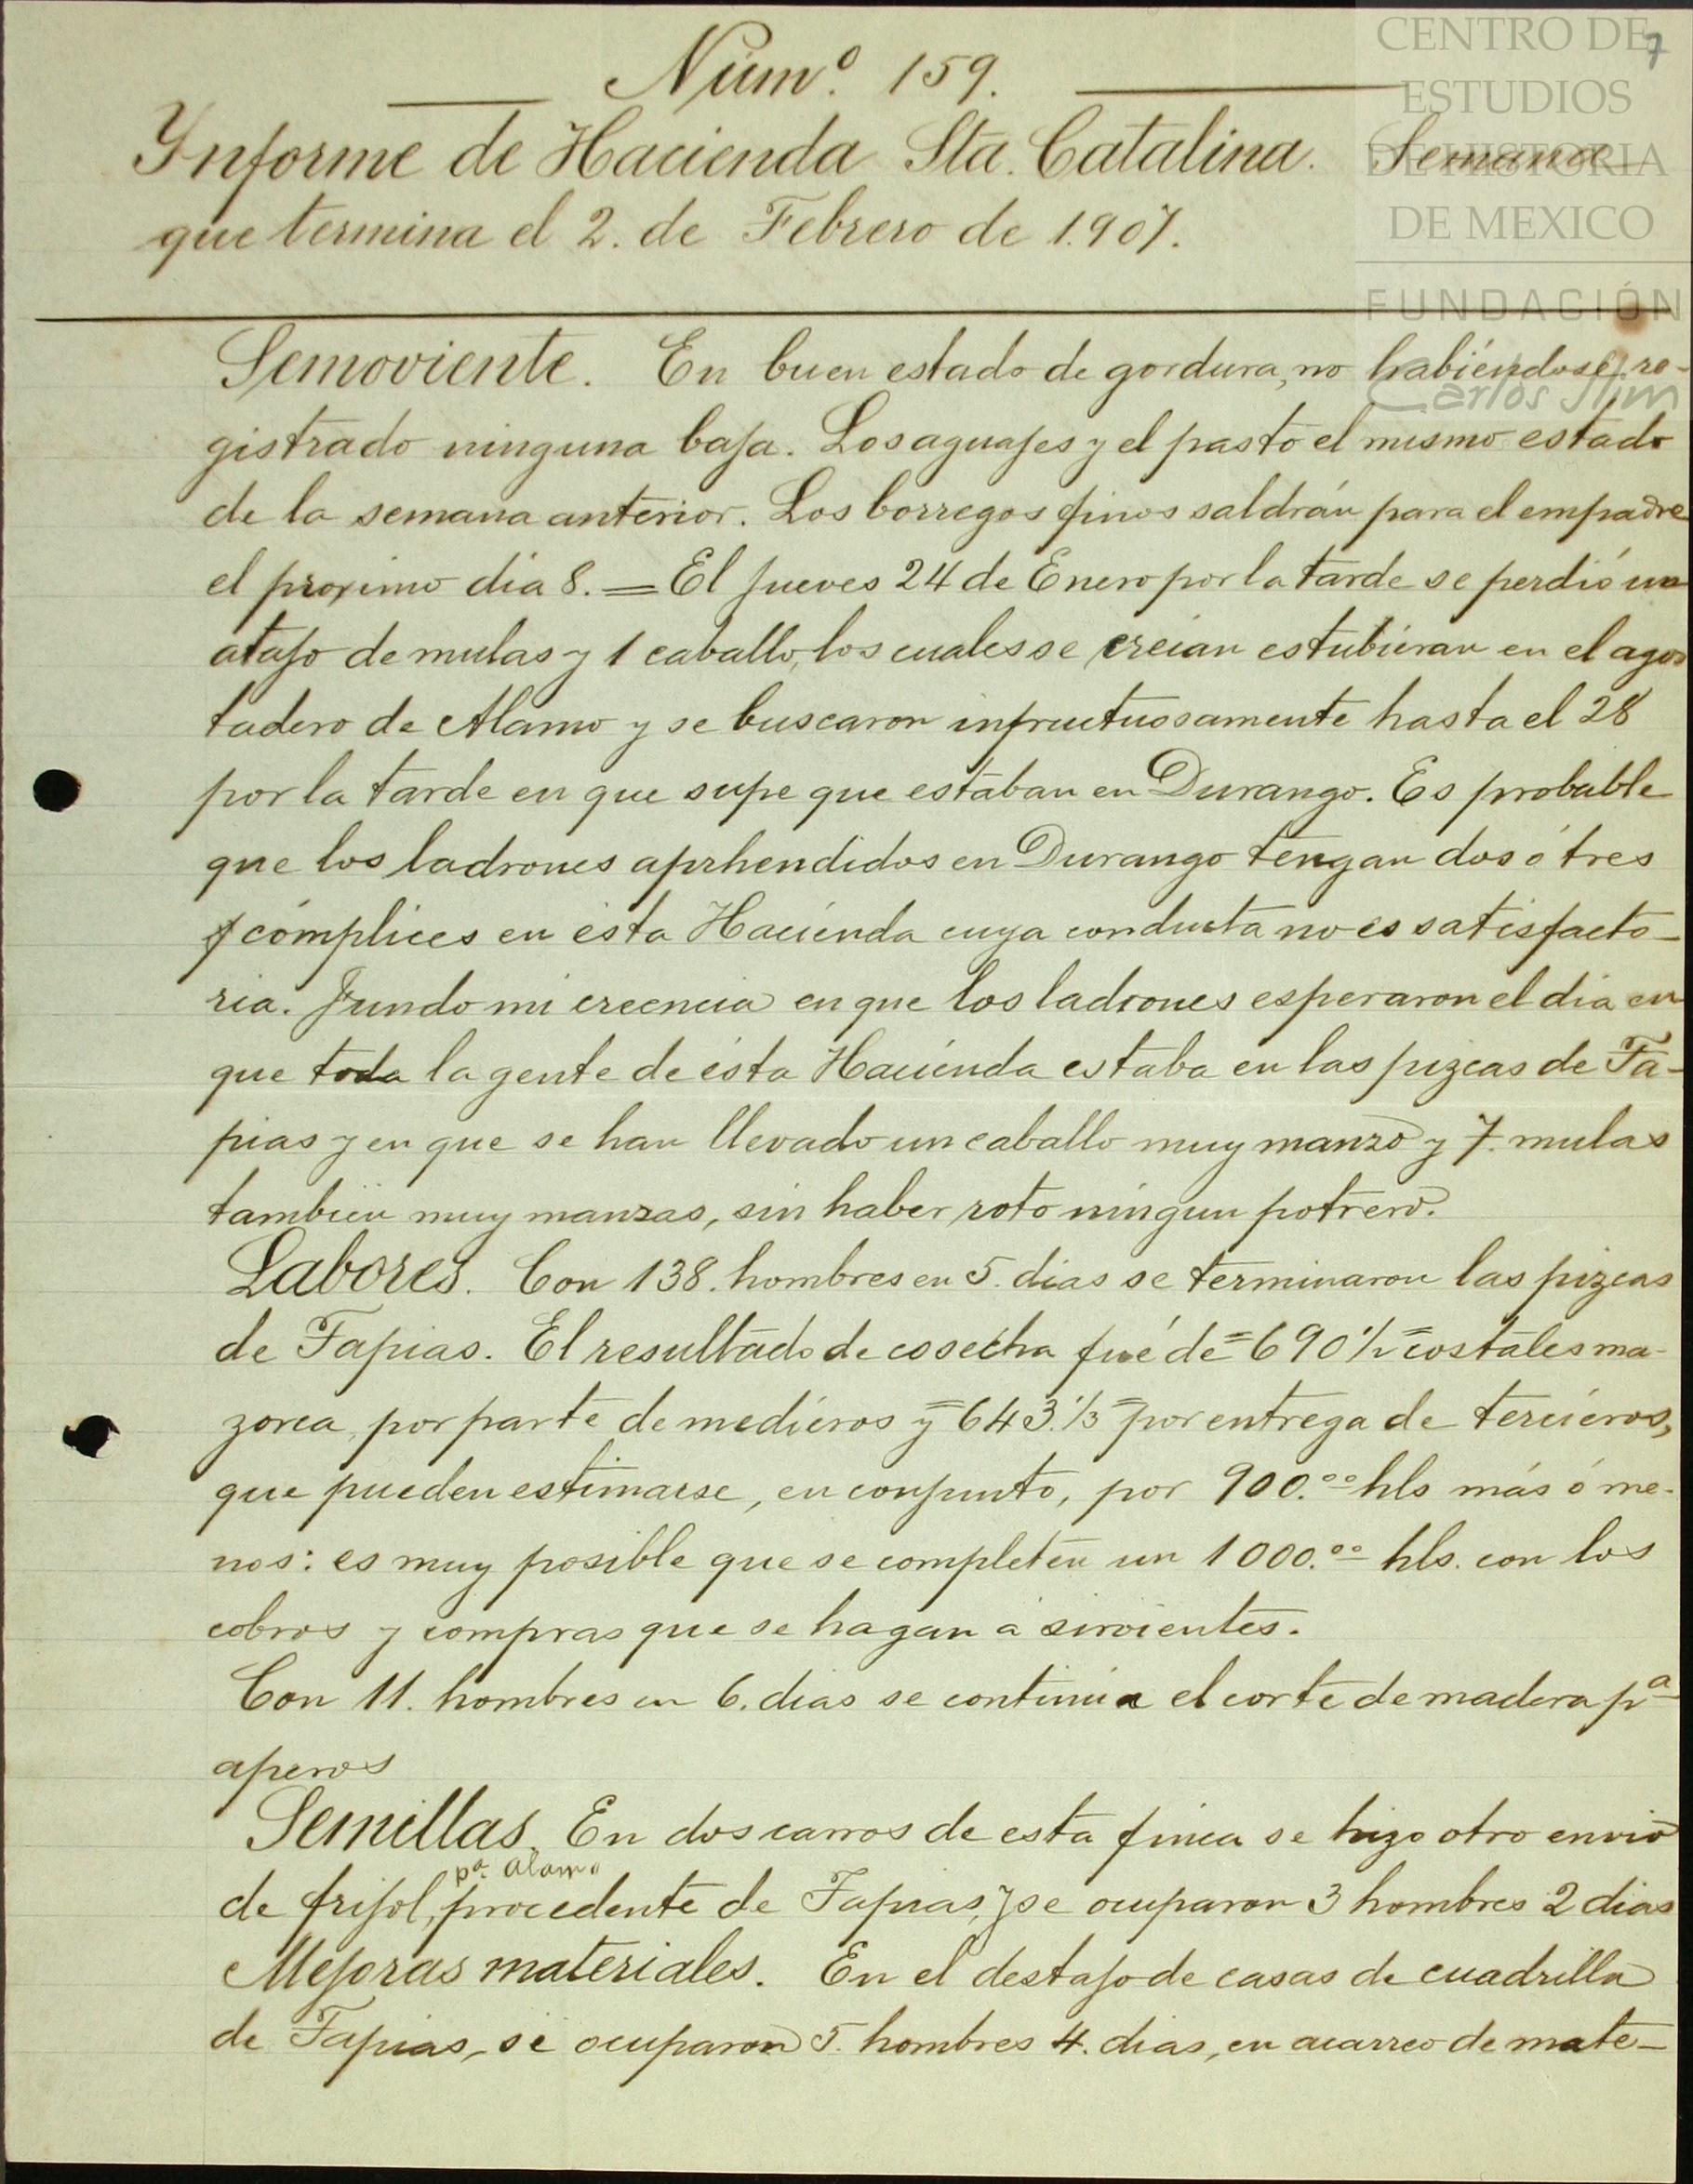 7
CENTRO DE
ESTUDIOS
DE HISTORIA
DE MEXICO
FUNDACIÓN
Carlos Slim
Núm.º 159.
Informe de Hacienda Sta. Catalina. Semana
que termina el 2. de Febrero de 1.907.
Semoviente. En buen estado de gordura, no habiéndose re-
gistrado ninguna baja. Los aguajes y el pasto el mismo estado
de la semana anterior. Los borregos finos saldrán para el empadre
el proximo dia 8. = El Jueves 24 de Enero por la tarde se perdió un
atajo de mulas y 1 caballo, los cuales se creian estubieran en el agos
tadero de Alamo y se buscaron infructuosamente hasta el 28
por la tarde en que supe que estaban en Durango. Es probable
que los ladrones aprhendidos en Durango tengan dos ó tres
cómplices en ésta Hacienda cuya conducta no es satisfacto-
ria. Fundo mi creencia en que los ladrones esperaron el dia en
que toda la gente de ésta Hacienda estaba en las pizcas de Ta-
pias y en que se han llevado un caballo muy manzo y 7. mulas
tambien muy manzas, sin haber roto ningun potrero.
Labores. Con 138. hombres en 5. dias se terminaron las pizcas
de Tapias. El resultado de cosecha fué de =690 1/2= costales ma-
zorca, por parte de medieros y =643. 1/3= por entrega de tercieros,
que pueden estimarse, en conjunto, por 900.00 hls más ó me-
nos: es muy posible que se completen un 1000.00 hls. con los
cobros y compras que se hagan á sirvientes.
Con 11. hombres en 6. dias se continúa el corte de madera pª
aperos
Semillas. En dos carros de esta finca se hizo otro envio
pª. Alamo
de frijol, procedente de Tapias, y se ocuparon 3 hombres 2 dias
Mejoras materiales. En el destajo de casas de cuadrilla
de Tapias, se ocuparon 5. hombres 4. dias, en acarreo de mate-